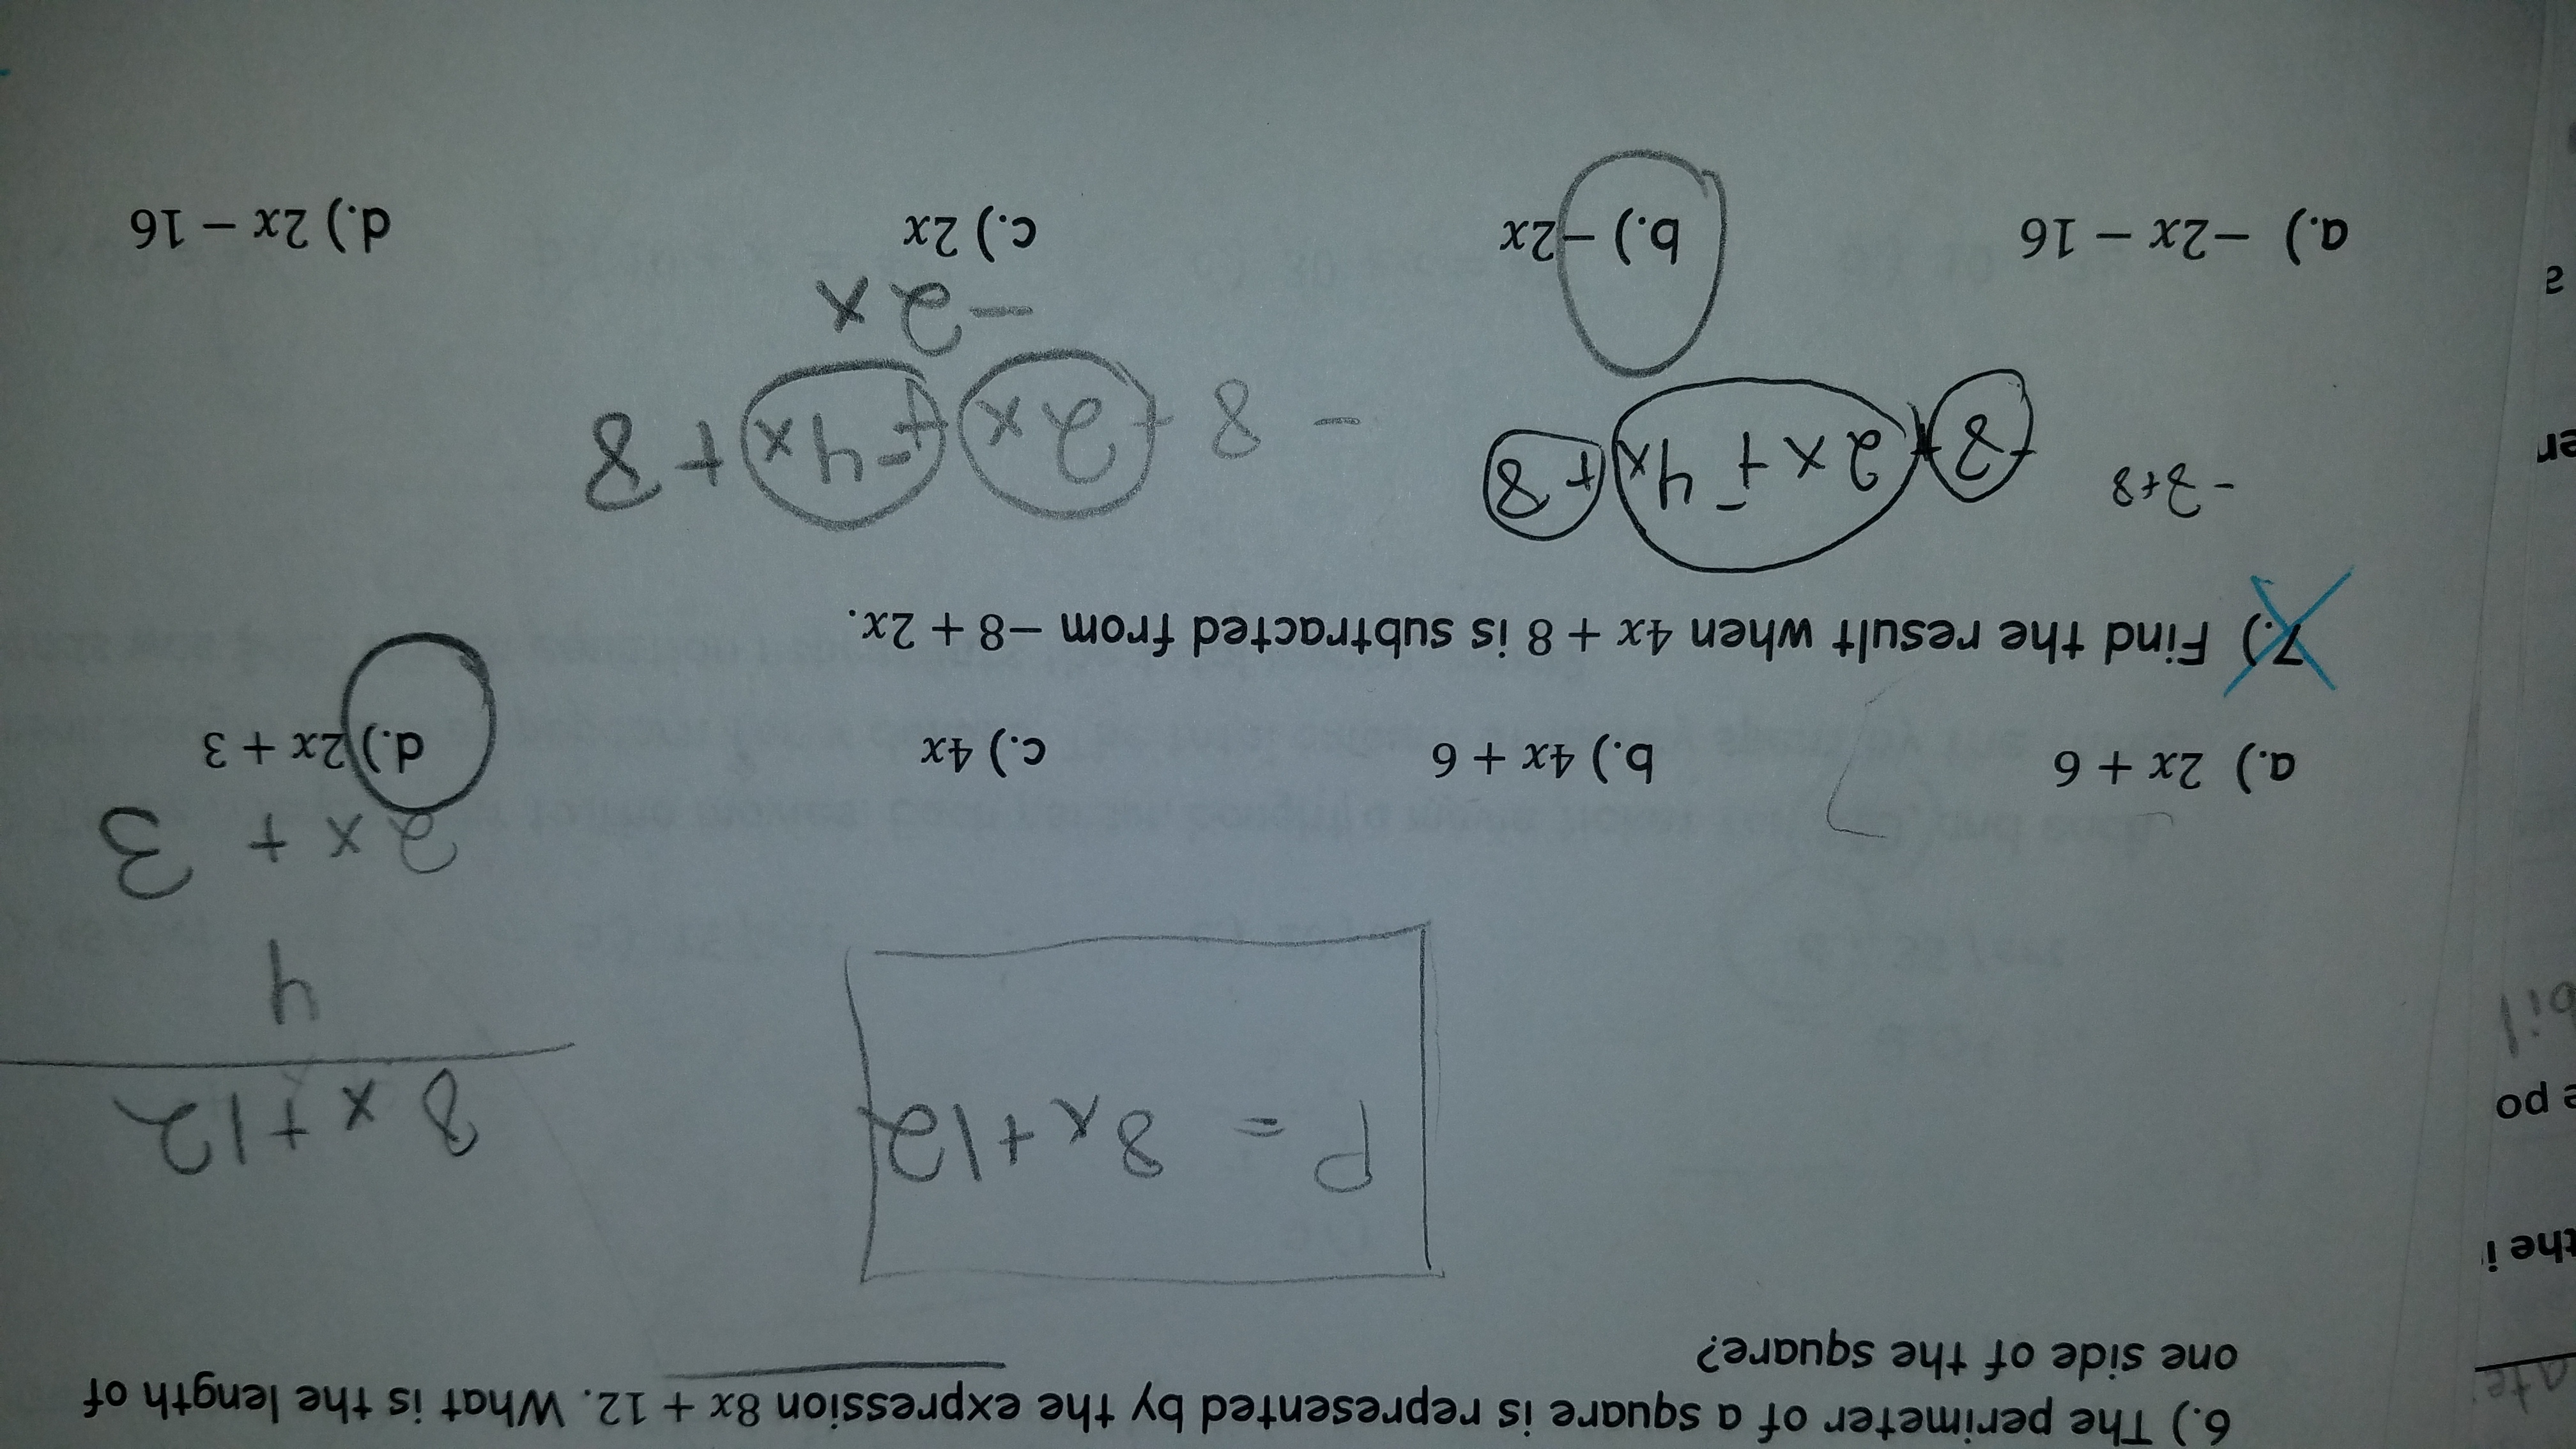 6.) The perimeter of a square is represented by the expression 8x + 12. What is the length of
one side of the square?
P = 8x+12
8x+12
4
2x + 3
a.) 2x + 6 b.) 4x + 6 c.) 4x d.) 2x + 3
7.) Find the result when 4x + 8 is subtracted from −8 + 2x.
-8+8
8 + 2x + -4x + 8
- 8 + 2x + -4x + 8
-2x
a.) −2x − 16 b.) −2x c.) 2x d.) 2x − 16
the i
e po
bil
er
a